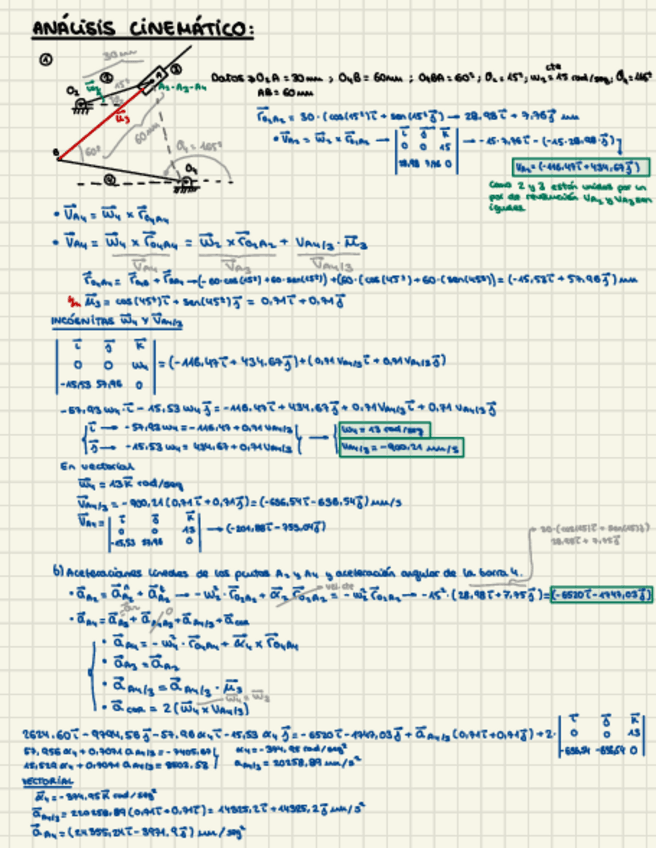 ANÁLISIS CINEMÁTICO:
①
30mm
O₂ 15° A A₂-A₃-A₄
μ⃗₃
B 60° 60mm θ₄=165° O₄
④
Datos → O₂A = 30 mm ; O₄B = 60mm ; O₄BA = 60° ; θ₂ = 15° ; ω₂ = 15 rad/seg ; θ₄ = 165°
cte
AB = 60 mm
r⃗O₂A₂ = 30·(cos(15°)i⃗ + sen(15°)j⃗) → 28,98i⃗ + 7,76j⃗ mm
• V⃗A₂ = ω⃗₂ × r⃗O₂A₂ → | i⃗ j⃗ k⃗ | 0 0 15 | 28,98 7,76 0 | → -15·7,76i⃗ - (-15·28,98·j⃗)
V⃗A₂ = (-116,47i⃗ + 434,67j⃗)
Como 2 y 3 están unidas por un
par de revolución VA₂ y VA₃ son
iguales.
• V⃗A₄ = ω⃗₄ × r⃗O₄A₄
• V⃗A₄ = ω⃗₄ × r⃗O₄A₄ = ω⃗₂ × r⃗O₂A₂ + VA₄/₃ · μ⃗₃
V⃗A₄ V⃗A₃ V⃗A₄/₃
r⃗O₄A₄ = r⃗O₄B + r⃗BA → (-60·cos(15°) + 60·sen(15°)) + (60·(cos(45°) + 60·(sen(45°)) = (-15,53i⃗ + 57,96j⃗) mm
μ⃗₃ = cos(45°)i⃗ + sen(45°)j⃗ = 0,71i⃗ + 0,71j⃗
INCÓGNITAS ω⃗₄ Y V⃗A₄/₃
| i⃗ j⃗ k⃗ |
| 0 0 ω₄ | = (-116,47i⃗ + 434,67j⃗) + (0,71 VA₄/₃i⃗ + 0,71 VA₄/₃j⃗)
| -15,53 57,96 0 |
-57,93 ω₄·i⃗ - 15,53 ω₄j⃗ = -116,47i⃗ + 434,67j⃗ + 0,71VA₄/₃i⃗ + 0,71 VA₄/₃j⃗
i⃗ → -57,93 ω₄ = -116,47 + 0,71 VA₄/₃ → ω₄ = 13 rad/seg
j⃗ → -15,53 ω₄ = 434,67 + 0,71 VA₄/₃ VA₄/₃ = -900,21 mm/s
En vectorial
ω⃗₄ = 13k⃗ rad/seg
V⃗A₄/₃ = -900,21 (0,71i⃗ + 0,71j⃗) = (-636,54i⃗ - 636,54j⃗) mm/s
V⃗A₄ = | i⃗ j⃗ k⃗ | 0 0 13 | -15,53 57,96 0 | → (-201,88j⃗)
30·(cos(15)i⃗ + sen(15)j⃗)
28,98i⃗ + 7,75j⃗
b) Aceleraciones lineales de los puntos A₂ y A₄ y aceleración angular de la barra 4.
• a⃗A₂ = a⃗A₂ + a⃗A₂ → -ω₂²·r⃗O₂A₂ + α⃗₂ r⃗O₂A₂ = -ω₂² r⃗O₂A₂ → -15²·(28,98i⃗ + 7,75j⃗) = (-6520i⃗ - 1747,03j⃗)
• a⃗A₄ = a⃗A₃ + a⃗A₄/₃ + a⃗cor
• a⃗A₄ = -ω₄²·r⃗O₄A₄ + α⃗₄ × r⃗O₄A₄
• a⃗A₃ = a⃗A₂
• a⃗A₄/₃ = a⃗A₄/₃ · μ⃗₃
• a⃗cor = 2(ω⃗₄ × VA₄/₃)
ω⃗₄ = ω⃗₃
2624,60i⃗ - 9794,58j⃗ - 57,96 α₄i⃗ - 15,53 α₄j⃗ = -6520i⃗ - 1747,03j⃗ + a⃗A₄/₃ (0,71i⃗ + 0,71j⃗) + 2· | i⃗ j⃗ k⃗ | 0 0 13 | -636,54 -636,54 0 |
57,956 α₄ + 0,7071 aA₄/₃ = -7405,67 α₄ = -374,95 rad/seg²
15,529 α₄ + 0,7071 aA₄/₃ = 8503,53 aA₄/₃ = 20258,89 mm/s²
VECTORIAL
α⃗₄ = -374,95k⃗ rad/seg²
a⃗A₄/₃ = 220258,89 (0,71i⃗ + 0,71j⃗) = 14325,2i⃗ + 14325,2j⃗ mm/s²
a⃗A₄ = (24355,24i⃗ - 3971,9j⃗) mm/seg²